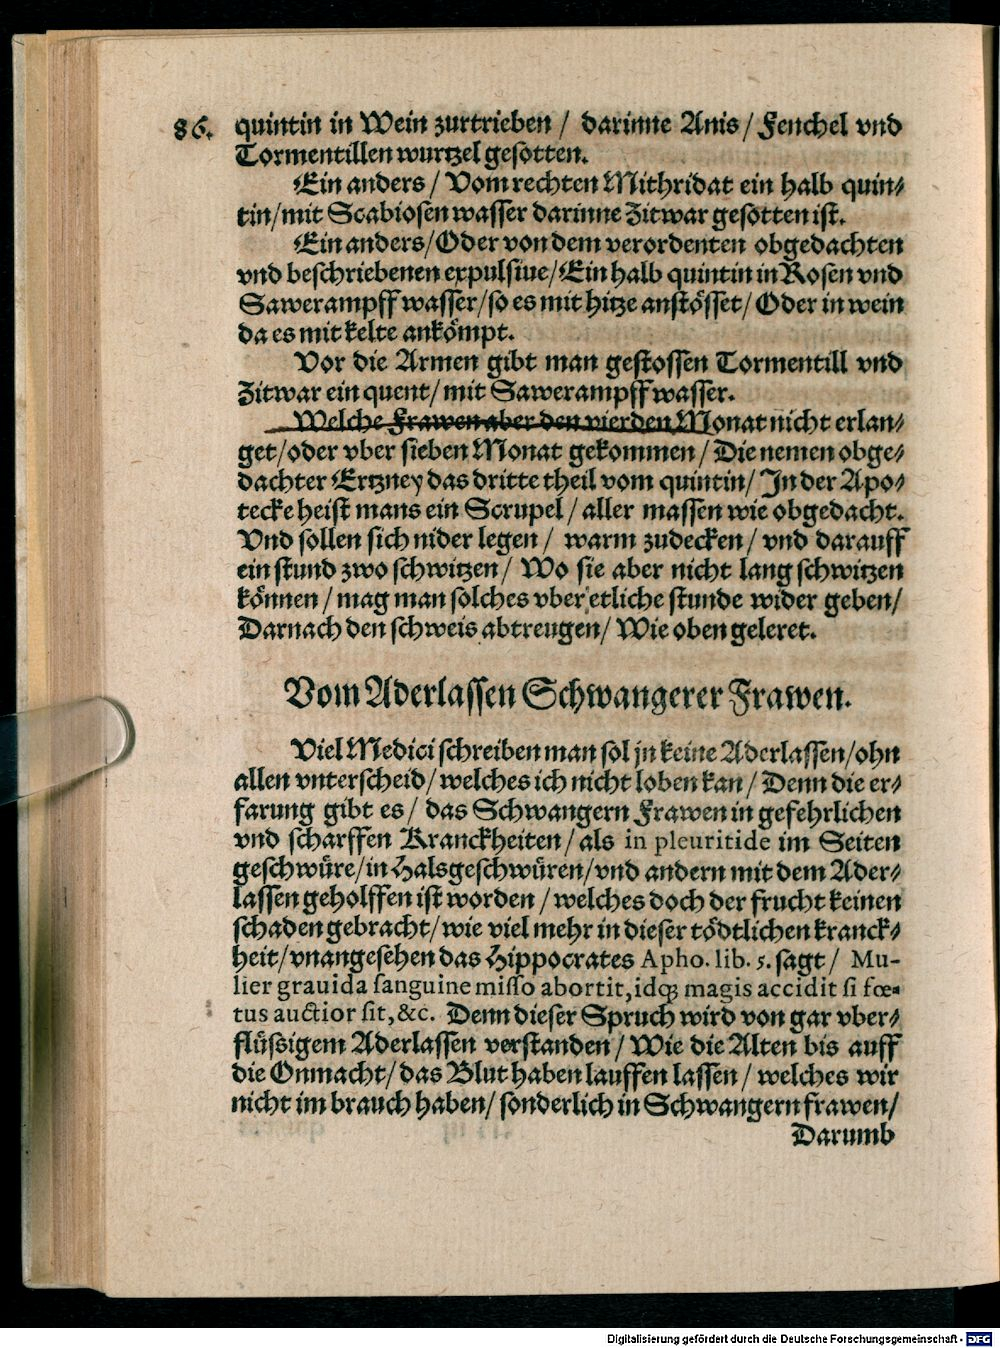 86. quintin in Wein zurtrieben / darinne Anis / Fenchel vnd
Tormentillen wurtzel gesotten.
Ein anders / Vom rechten Mithridat ein halb quin-
tin / mit Scabiosen wasser darinne Zitwar gesotten ist.
Ein anders / Oder von dem verordenten obgedachten
vnd beschriebenen expulsiue / Ein halb quintin in Rosen vnd
Sawerampff wasser / so es mit hitze anstösset / Oder in wein
da es mit kelte ankömpt.
Vor die Armen gibt man gestossen Tormentill vnd
Zitwar ein quent / mit Sawerampff wasser.
Welche Frawen aber den vierden Monat nicht erlan-
get / oder vber sieben Monat gekommen / Die nemen obge-
dachter Ertzney das dritte theil vom quintin / In der Apo-
tecke heist mans ein Scrupel / aller massen wie obgedacht.
Vnd sollen sich nider legen / warm zudecken / vnd darauff
ein stund zwo schwitzen / Wo sie aber nicht lang schwitzen
können / mag man solches vber etliche stunde wider geben /
Darnach den schweis abtreugen / Wie oben geleret.
Vom Aderlassen Schwangerer Frawen.
Viel Medici schreiben man sol jn keine Aderlassen / ohn
allen vnterscheid / welches ich nicht loben kan / Denn die er-
farung gibt es / das Schwangern Frawen in gefehrlichen
vnd scharffen Kranckheiten / als in pleuritide im Seiten
geschwüre / in Halsgeschwüren / vnd andern mit dem Ader-
lassen geholffen ist worden / welches doch der frucht keinen
schaden gebracht / wie viel mehr in dieser tödtlichen kranck-
heit / vnangesehen das Hippocrates Apho. lib. 5. sagt / Mu-
lier grauida sanguine misso abortit, idq; magis accidit si fœ-
tus auctior sit, &c. Denn dieser Spruch wird von gar vber-
flüssigem Aderlassen verstanden / Wie die Alten bis auff
die Onmacht / das Blut haben lauffen lassen / welches wir
nicht im brauch haben / sonderlich in Schwangern frawen /
Darumb
Digitalisierung gefördert durch die Deutsche Forschungsgemeinschaft - DFG